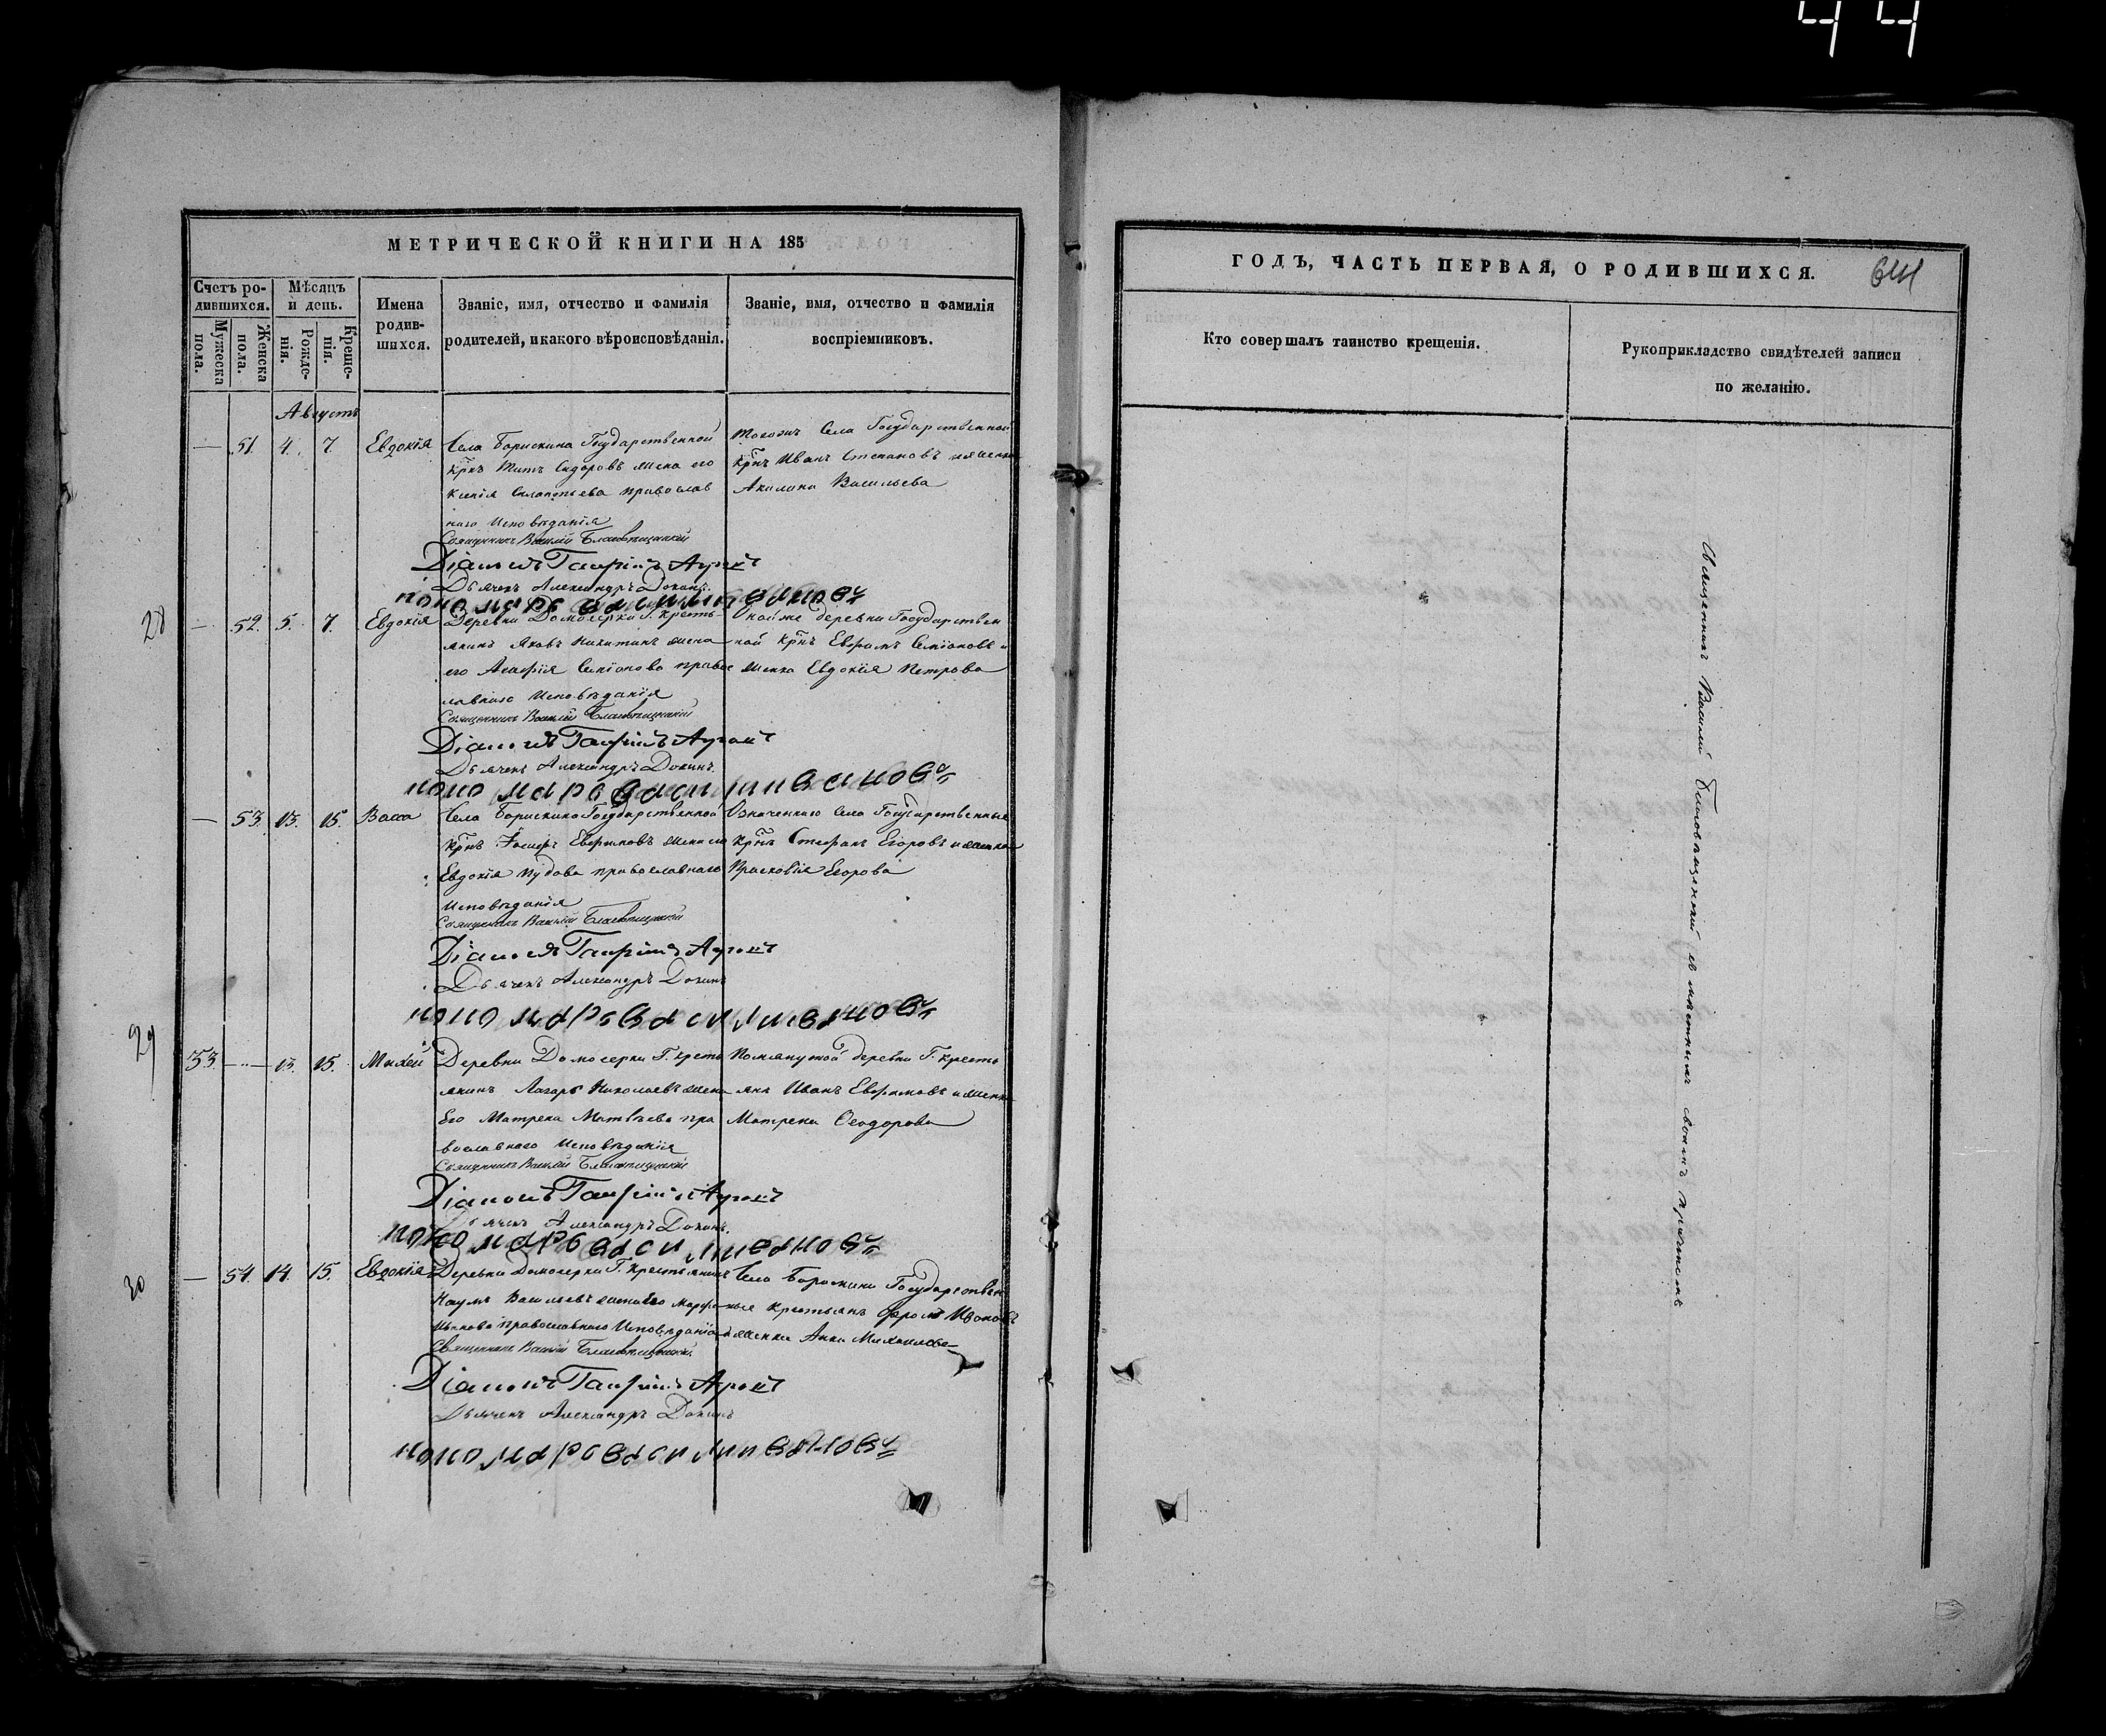 44
МЕТРИЧЕСКОЙ КНИГИ НА 185
Счетъ родившихся.
Мужеска пола.
Женска пола.
Мѣсяцъ и день.
Рожденія.
Крещенія.
Имена родившихся.
Званіе, имя, отчество и фамилія
родителей, и какого вѣроисповѣданія.
Званіе, имя, отчество и фамилія
воспріемниковъ.
Августъ
— 51. 4. 7. Евдокія
Села Борискина Государственной
крнъ Титъ Сидоровъ жена его
Ксенія православ
наго Исповѣданія
Священникъ Василій
Діаконъ
Дьячекъ Александръ Докинъ.
пономарь василий ивановъ
Тогожъ Села Государственной
крнъ Иванъ Степановъ и женка
Акилина Васильева
28
— 52. 5. 7. Евдокія
Деревни Домосерки Г. кресть
янинъ Яковъ Никитинъ жена
его Агафія Семіонова правос
лавнаго Исповѣданія
Священникъ Василій
Діаконъ
Дьячекъ Александръ Докинъ.
пономарь василий ивановъ
Онойже деревни Государствен
ной крнъ Ефремъ Семіоновъ и
женка Евдокія Петрова
— 53. 13. 15. Васса
Села Борискина Государственной
крнъ Ефимовъ жена его
Евдокія православнаго
Исповѣданія
Священникъ Василій
Діаконъ
Дьячекъ Александръ Докинъ
пономарь василий ивановъ
Означеннаго Села Государственные
крнъ Стефанъ Егоровъ и женка
Прасковія Егорова
29
53. — 13. 15. Михей
Деревни Домосерки Г. кресть
янинъ Лазарь Николаевъ жена
Его Матрена Матвѣева пра
вославнаго Исповѣданія
Священникъ Василій
Діаконъ
Дьячекъ Александръ Докинъ.
пономарь василий ивановъ
Помянутой деревни Г. кресть
янъ Иванъ Ефимовъ и женка
Матрена Феодорова
30
— 54. 14. 15. Евдокія
Деревни Домосерки Г. Крестьянинъ
Наумъ Васильевъ жена Его Марфа
православнаго Исповѣданія
Священникъ Василій
Діаконъ
Дьячекъ Александръ Докинъ
пономарь василий ивановъ
Села Борискина Государствен
ные крестьянъ Ивановъ
и женка Анна Михаилова
ГОДЪ, ЧАСТЬ ПЕРВАЯ, О РОДИВШИХСЯ.
Кто совершалъ таинство крещенія.
Рукоприкладство свидѣтелей записи
по желанію.
Священникъ Василій съ мѣстнымъ своимъ причтомъ